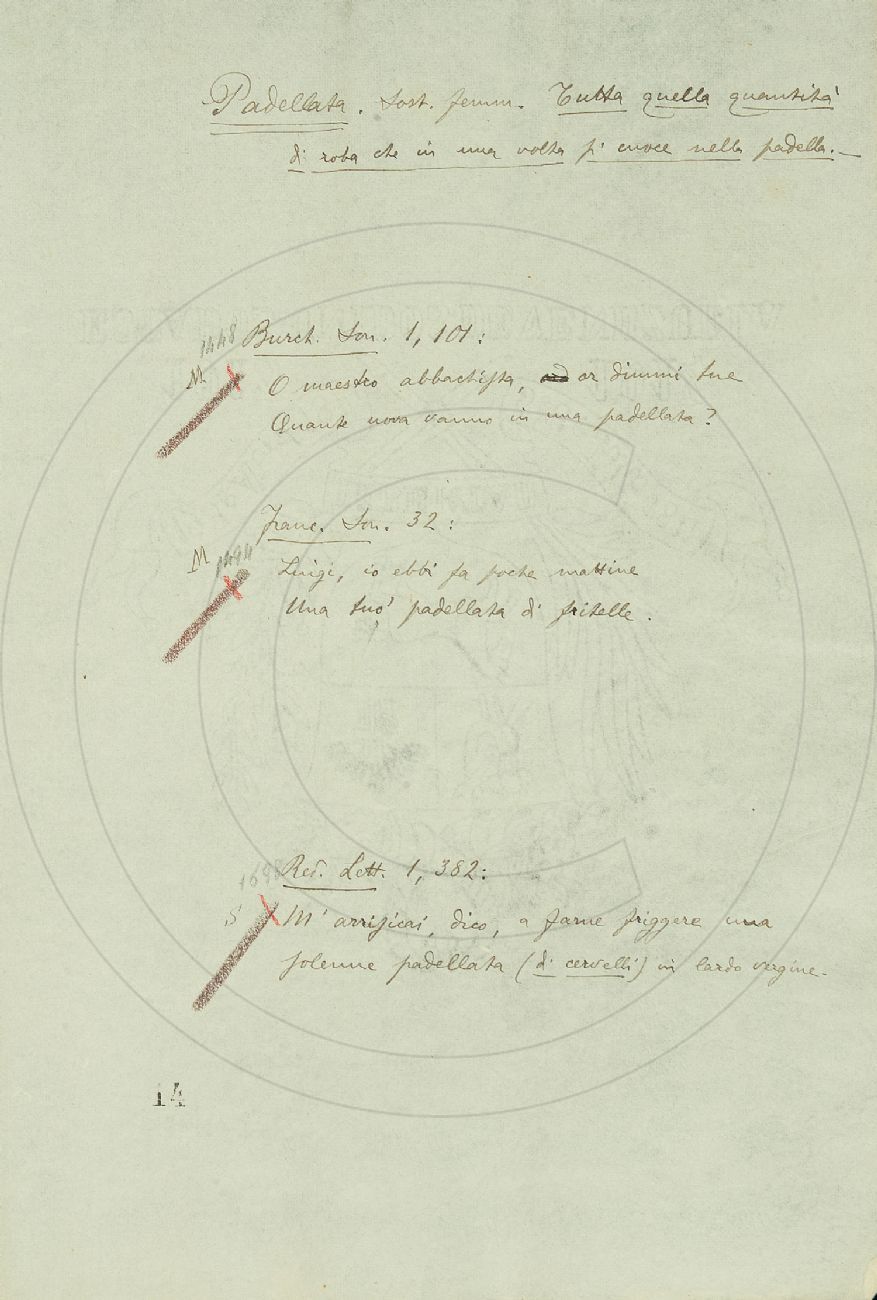 Padellata. Sost. femm. Tutta quella quantità
di roba che in una volta si cuoce nella padella. —
1448
Burch. Son. 1, 101:
M
O maestro abbachista, or dimmi tue
Quante uova vanno in una padellata?
Franc. Son. 32:
M 1494
Luigi, io ebbi fa poche mattine
Una tuo' padellata di fritelle.
1698
Red. Lett. 1, 382:
S M' arrisicai, dico, a farne friggere una
solenne padellata (di cervelli) in lardo vergine.
14